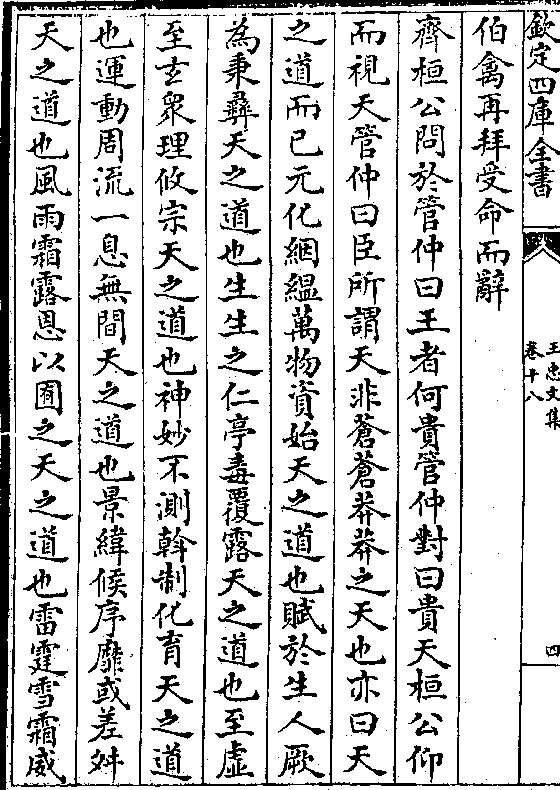 欽定四庫全書
王忠文集
卷十八
四
伯禽再拜受命而辭
齊桓公問於管仲曰王者何貴管仲對曰貴天桓公仰
而視天管仲曰臣所謂天非蒼蒼莽莽之天也亦曰天
之道而已元化絪緼萬物資始天之道也賦於生人厥
為秉彝天之道也生生之仁亭毒覆露天之道也至虛
至玄衆理攸宗天之道也神妙不測斡制化育天之道
也運動周流一息無間天之道也景緯候序靡或差舛
天之道也風雨霜露恩以囿之天之道也雷霆雪霜威